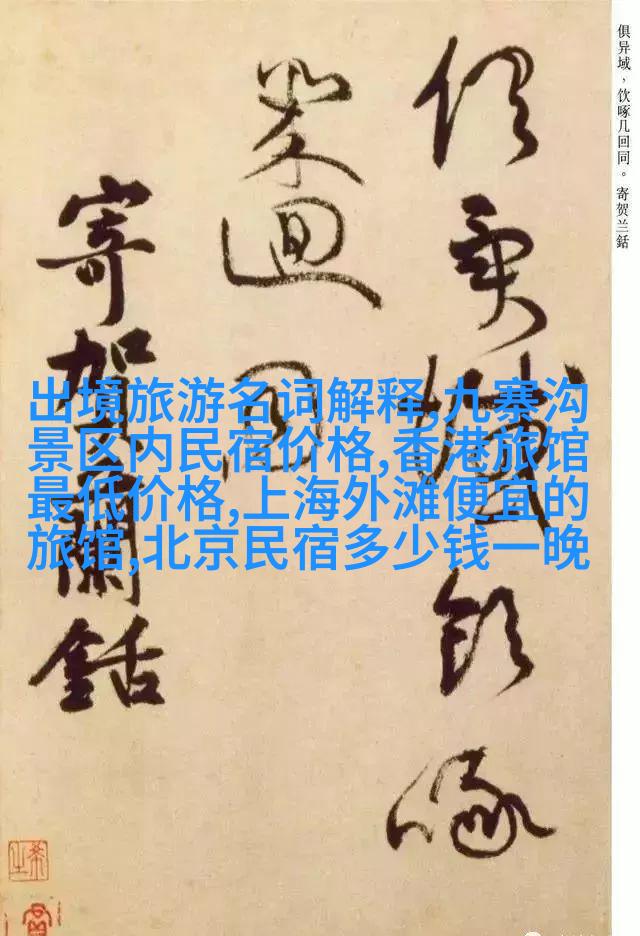 俱异域，饮啄几回同。寄贺兰銛
俱異域飲啄
幾迴同
寄賀蘭銛
出境旅游名词解释,九寨沟
景区内民宿价格,香港旅馆
最低价格,上海外滩便宜的
旅馆,北京民宿多少钱一晚